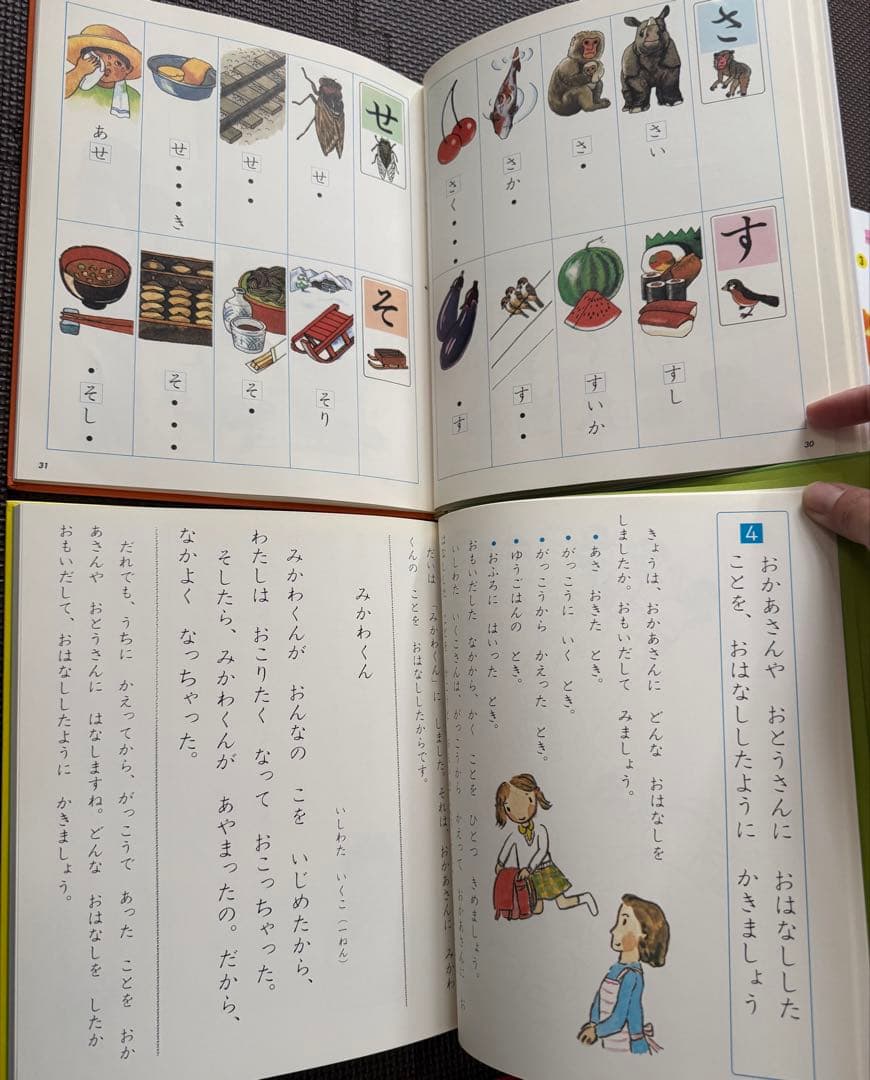 さ
さい
さ・
さか・
さく・・・
す
すし
すいか
す・・
・す
30
せ
せ・
せ・・
せ・・・き
あせ
そ
そり
そ・
そ・・・
・そし・
31
4
おかあさんや おとうさんに おはなしした
ことを、おはなししたように かきましょう
きょうは、おかあさんに どんな おはなしを
しましたか。おもいだして みましょう。
・あさ おきた とき。
・がっこうに いく とき。
・がっこうから かえった とき。
・ゆうごはんの とき。
・おふろに はいった とき。
おもいだした なかから、かく ことを ひとつ きめましょう。
いしわた いくこさんは、がっこうから かえって おかあさんに お
だいは 「みかわくん」に しました。それは、おかあさんに みかわ
くんの ことを おはなししたからです。
みかわくん
いしわた いくこ(一ねん)
みかわくんが おんなの こを いじめたから、
わたしは おこりたく なって おこっちゃった。
そしたら、みかわくんが あやまったの。だから、
なかよく なっちゃった。
だれでも、うちに かえってから、がっこうで あった ことを おか
あさんや おとうさんに はなしますね。どんな おはなしを したか
おもいだして、おはなししたように かきましょう。
3